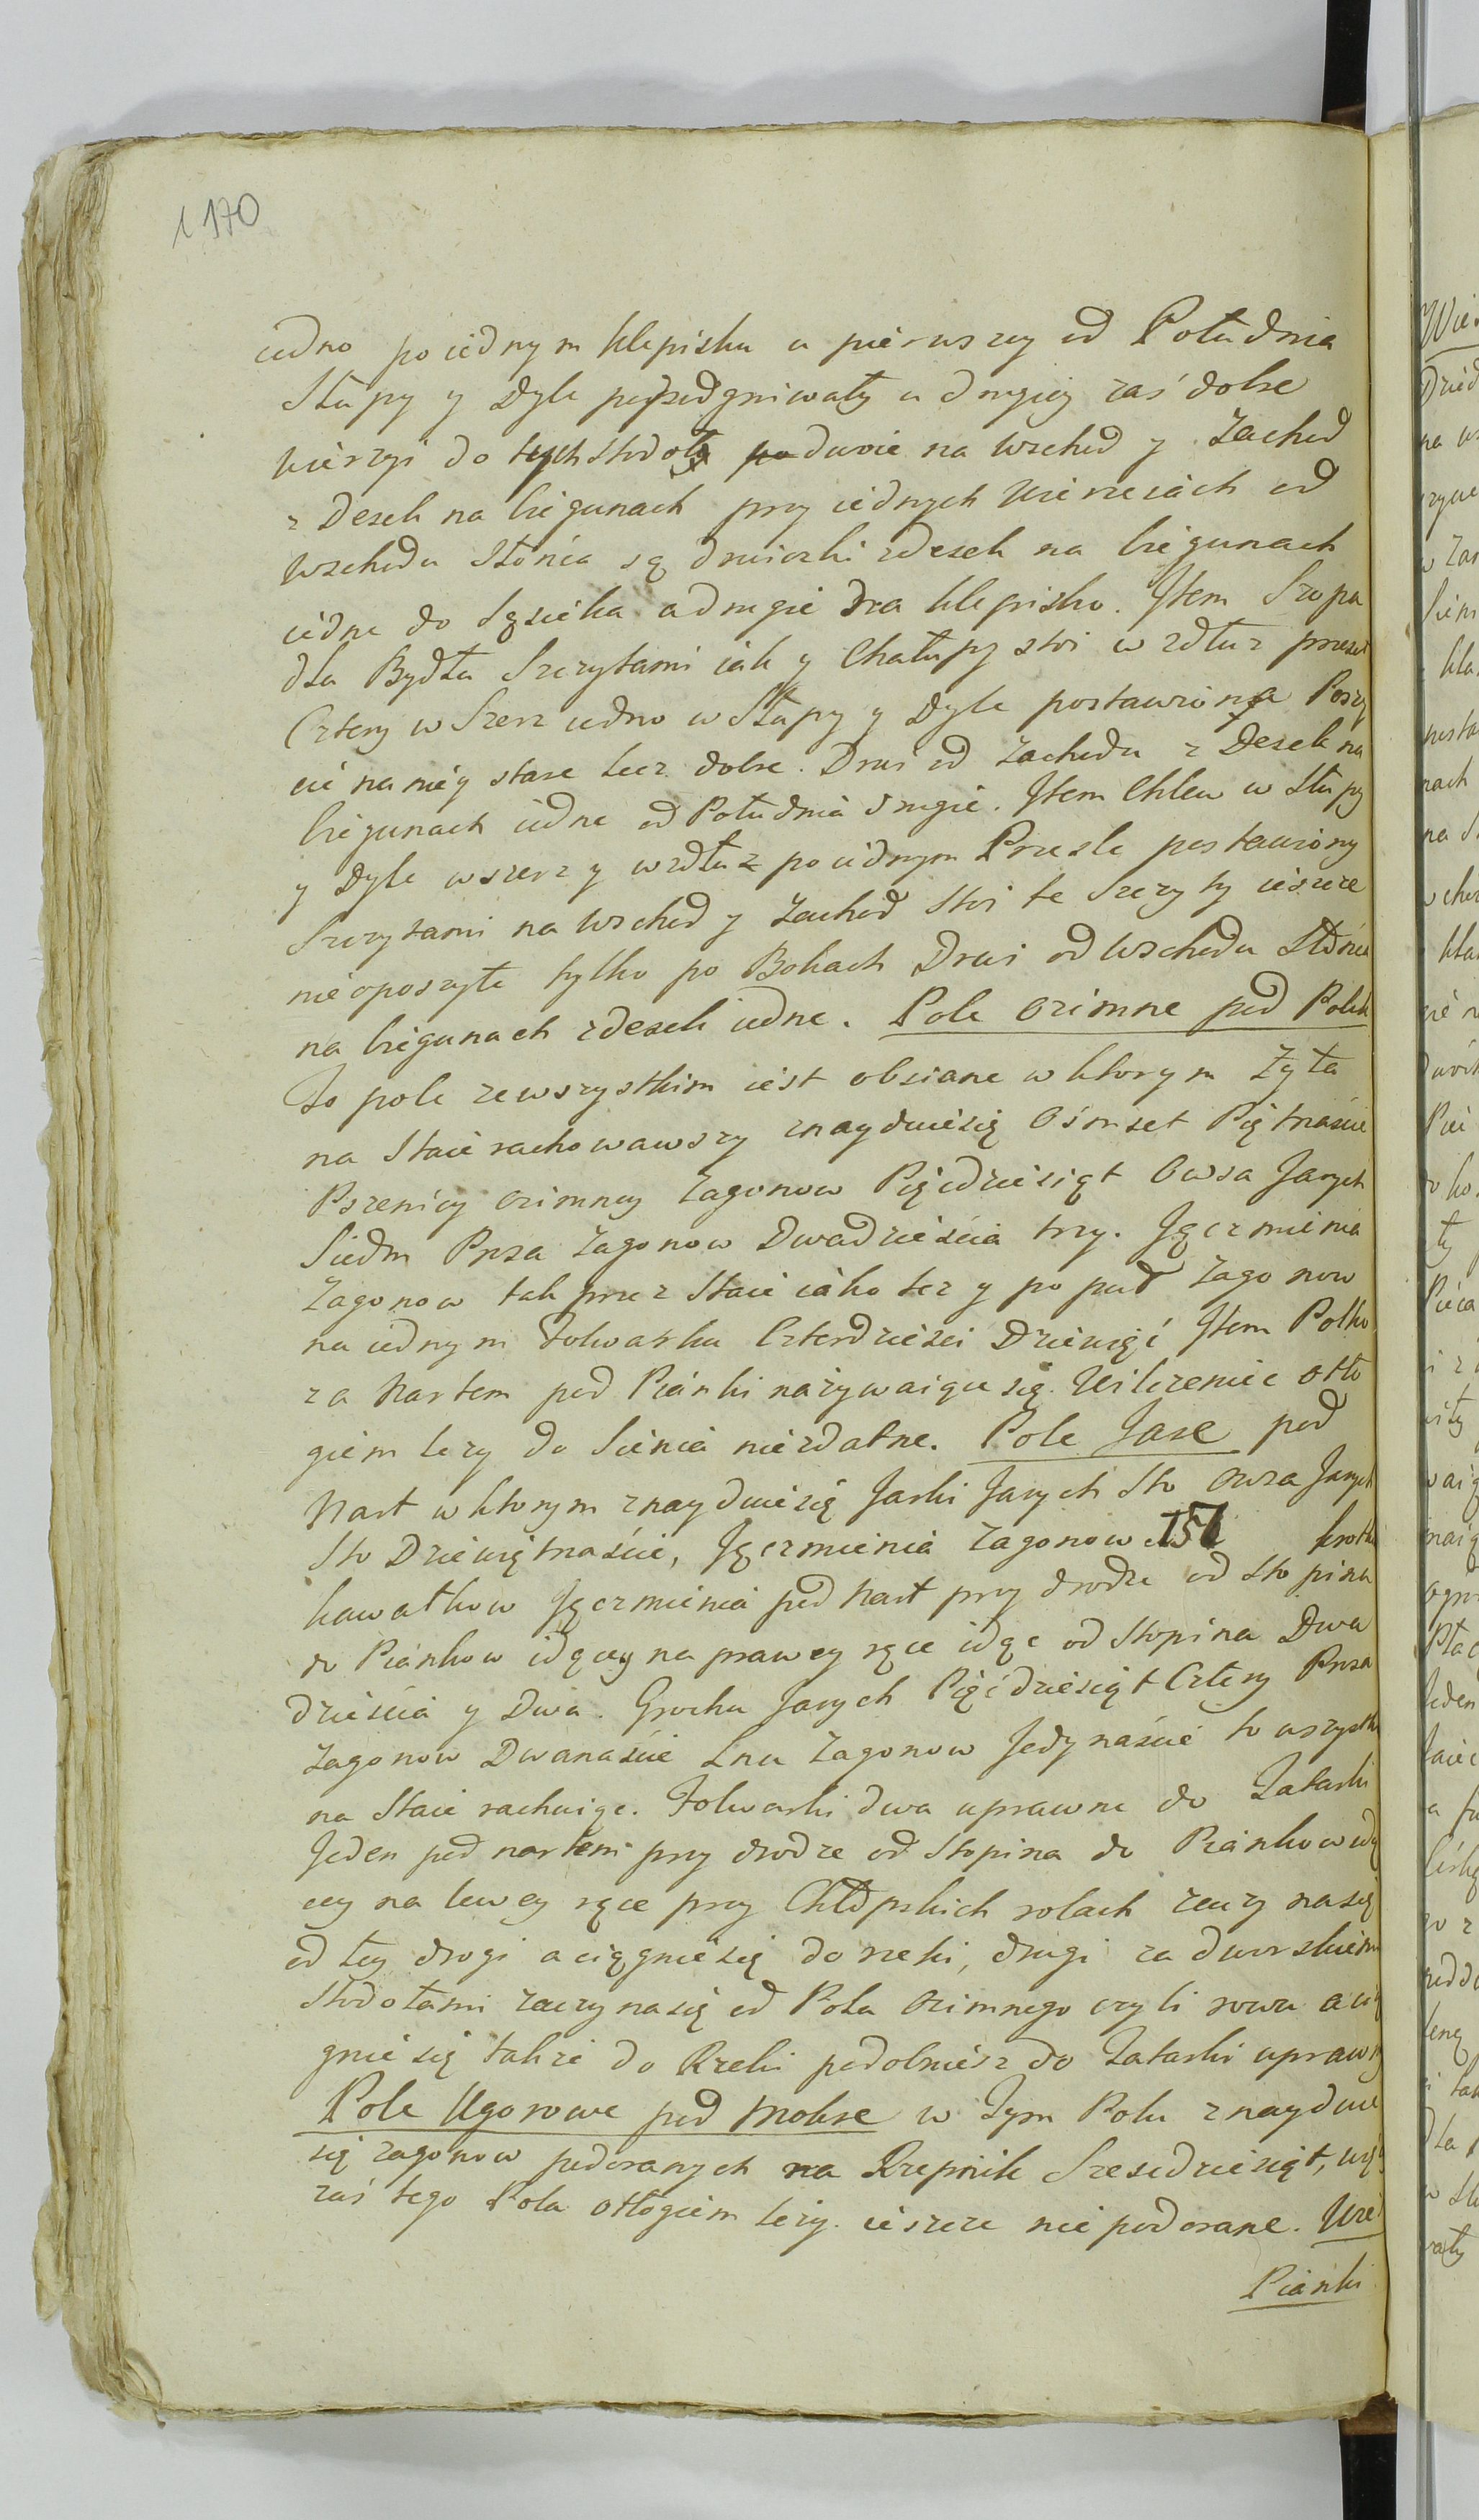 1170
iedno po iednym klepisku u pierwszey od Południa
Słupy y Dyle popodgniwały u drugiey zaś dobre
wierzyi do tych stodoły po dwoie na Wschod y Zachod
z Desek na biegunach przy iednych Wierzeiach od
Wschodu Słońca są drzwiczki z desek na biegunach
iedne do Sąsieka a drugie dra klepisko. Item Szopa
dla Bydła Szczytami iak y Chałupy stoi w zdłuż przeseł
Cztery w Szerz iedno w Słupy y Dyle postawiona Poszy
cie na niey stare lecz dobre. Drzwi od Zachodu z Desek na
biegunach iedne od Południa drugie. Item Chlew w Słupy
y Dyle wszerz y wzdłuż po iednym Przęśle postawiony
Szczytami na Wschod y Zachod Stoi te Szczyty ieszcze
nieoposzyte tylko po Bokach Drzwi od Wschodu Słońca
na biegunach z desek iedne. Pole ozimne pod Polik
To pole zewszystkim iest obsiane w ktorym Żyta
na Staie rachowawszy znayduie się Osmset Piętnaście
Pszenicy ozimney Zagonow Pięcdziesiąt Owsa Jarych
Siedm Prosa Zagonow Dwadzieścia trzy. Jęczmienia
Zagonow tak przez Staie iako też y po pod Zagonow
na iednym Folwarku Czterdzieści Dziewięć Item Polko
za Nartem pod Pianki nazywaiące się Wilczeniec odło
giem leży do Sienia niezdatne. Pole Jare pod
Nart w ktorym znayduie się Jarki Jarych Sto Owsa Jarych
Sto Dziewiętnaście, Jęczmienia Zagonow 151 krotki
kawałkow Jęczmienia pod Nart przy drodze od Stopina
do Piankow idącey na prawey ręce idąc od Stopina Dwa
dzieścia y Dwa. Grochu Jarych Pięćdziesiąt Cztery Prosa
Zagonow Dwanaście Lnu Zagonow Jedynaście to wszystko
na Staie rachuiąc. Folwarki dwa uprawne do Tatarki
Jeden pod nartem przy drodze od Stopina do Piankow idą
cey na lewey ręce przy Chłopskich rolach zaczyna się
od tey drogi a ciągnie się do rzeki, drugi za dworskiemi
Stodołami zaczyna się od Pola Ozimnego czyli rowu a cią
gnie się także do Rzeki podobnież do Tatarki uprawny
Pole Ugorowe pod Mokre w Tym Polu znayduie
się zagonow podoranych na Rzepnik Szesćdziesiąt,
zaś tego Pola odłogiem leży ieszcze nie podorane. Wieś
Pianki